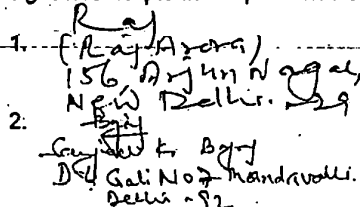 Raj
1. (Raj Arora)
156 Arjun Nagar,
New Delhi. 29
2:
K. Bajaj
D-4 Gali No 7 Mandavalli.
Delhi - 92